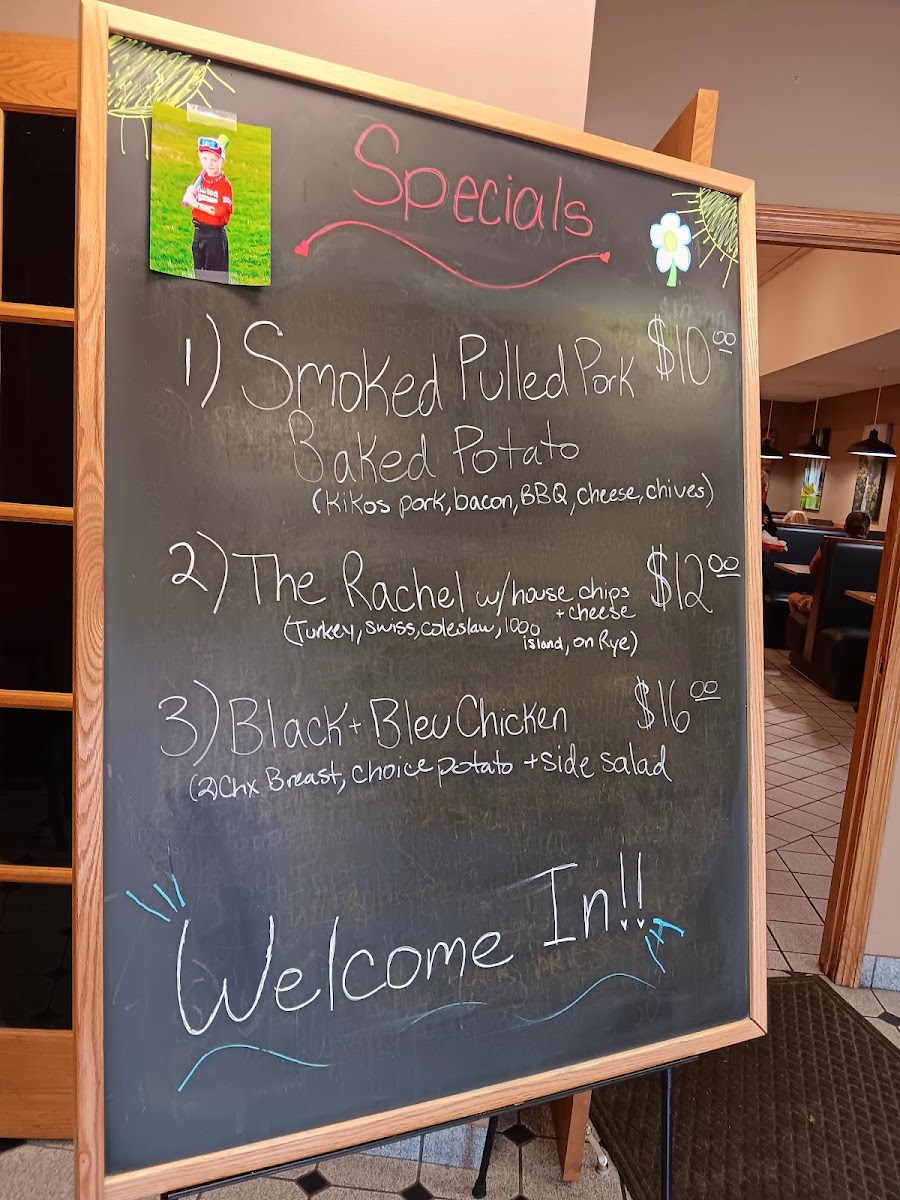 Specials
1) Smoked Pulled Pork $10.00
Baked Potato
(Kikos pork, bacon, BBQ, cheese, chives)
2) The Rachel w/house chips $12.00
+ cheese
(Turkey, swiss, coleslaw, 1000
island, on Rye)
3) Black + Bleu Chicken $16.00
(2) Chx Breast, choice potato + side salad
Welcome In!!